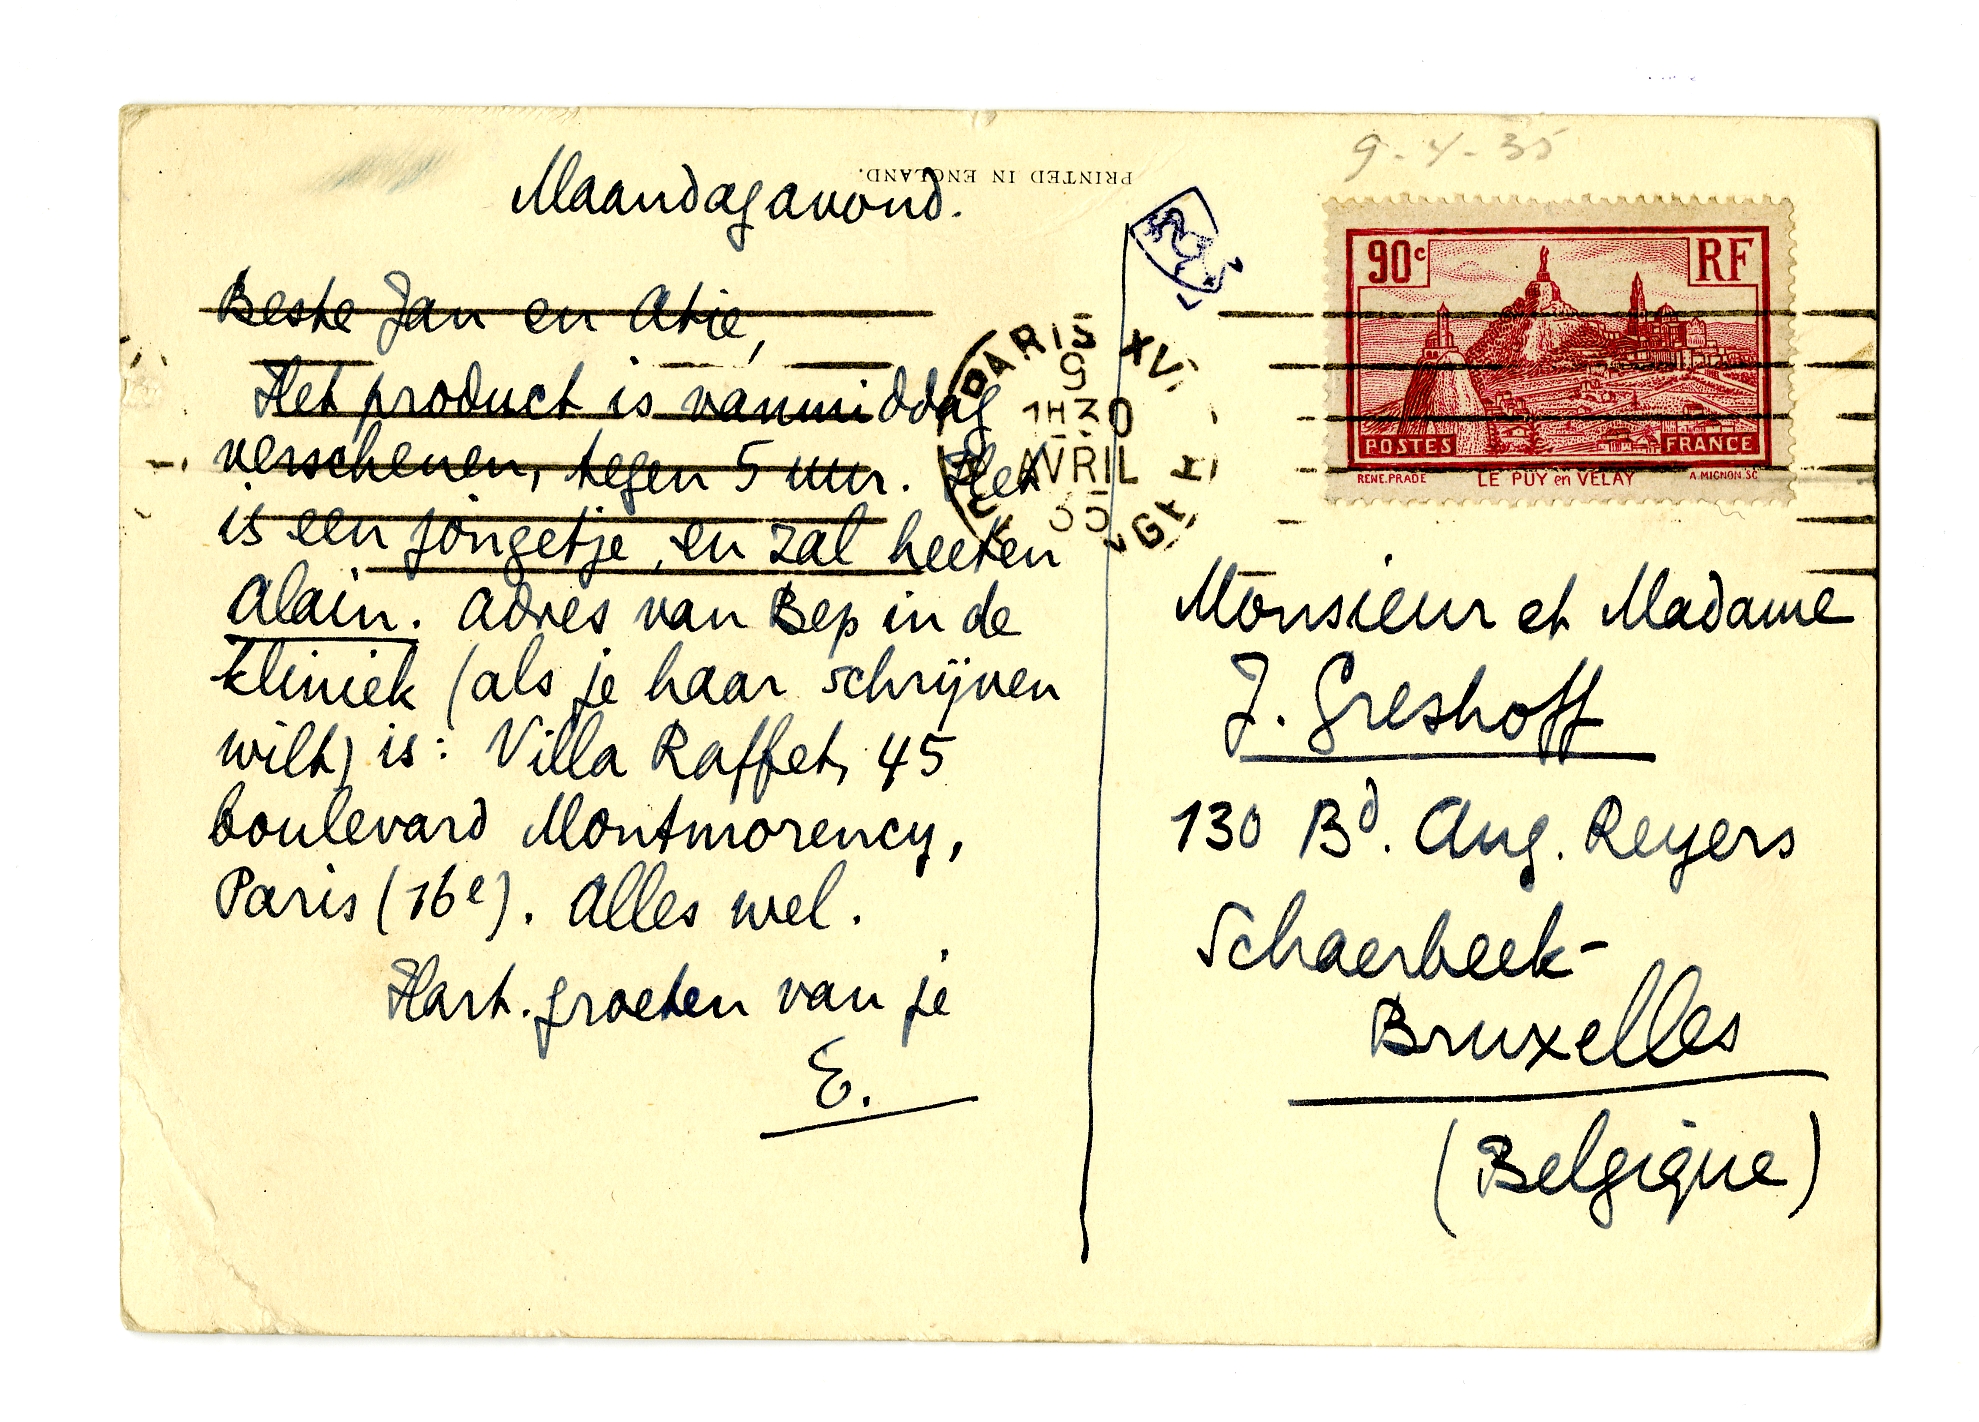 9-4-35
PRINTED IN ENGLAND.
Maandagavond.
Beste Jan en Atie,
Het product is vanmiddag
verschenen, tegen 5 uur. Het
is een jongetje, en zal heeten
Alain. Adres van Bep in de
kliniek (als je haar schrijven
wilt) is: Villa Raffet, 45
boulevard Montmorency,
Paris (16e). Alles wel.
Hart. groeten van je
E.
PARIS XVI
9
1H30
AVRIL
35
90c RF
POSTES FRANCE
RENE.PRADE LE PUY en VELAY A MIGNON.SC
Monsieur et Madame
J. Greshoff
130 Bd. Aug. Reyers
Schaerbeek-
Bruxelles
(Belgique)